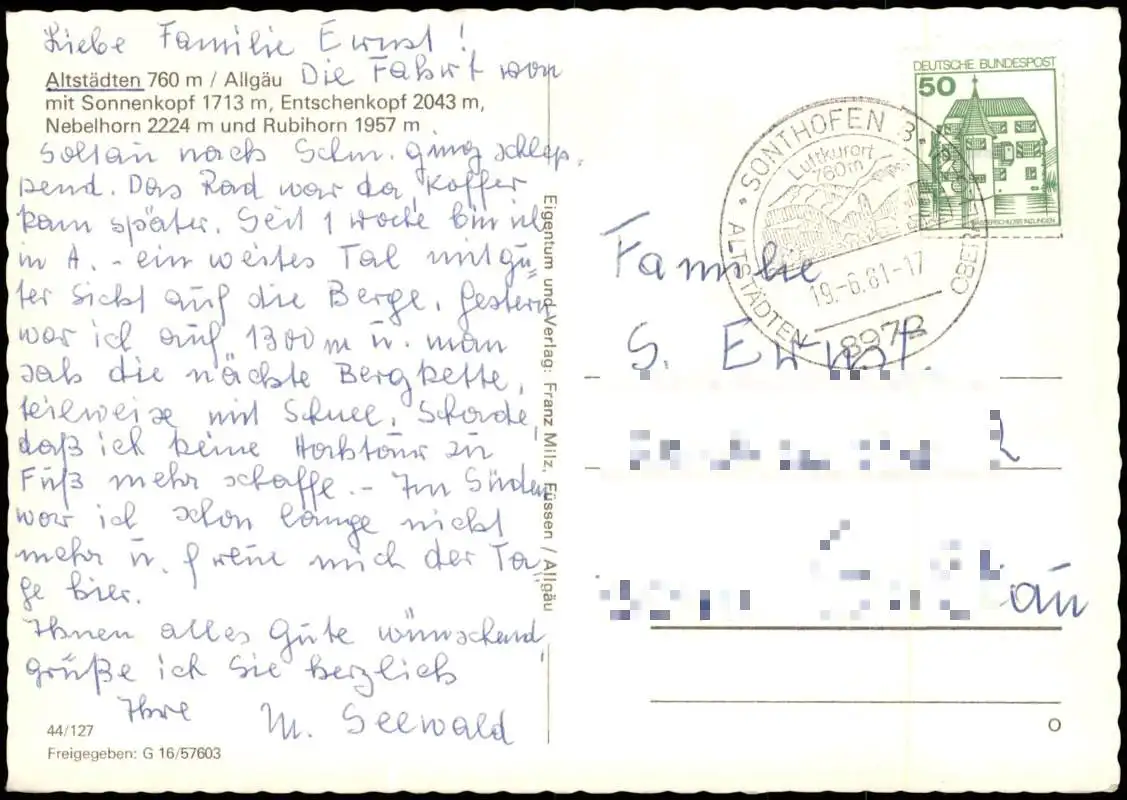 Liebe Familie Ernst!
Altstädten 760 m / Allgäu Die Fahrt von
mit Sonnenkopf 1713 m, Entschenkopf 2043 m,
Nebelhorn 2224 m und Rubihorn 1957 m
Soltau nach Schm. ging schlep-
pend. Das Rad war da, Koffer
kam später. Seit 1 Woche bin ich
in A. - ein weites Tal mit gu-
ter Sicht auf die Berge. Gestern
war ich auf 1300 m u. man
sah die nächste Bergkette,
teilweise mit Schnee. Schade,
daß ich keine Hochtour zu
Fuß mehr schaffe. - Im Süden
war ich schon lange nicht
mehr u. freue mich der Ta-
ge hier.
Ihnen alles Gute wünschend,
grüße ich Sie herzlich
Ihre M. Seewald
44/127
Freigegeben: G 16/57603
Eigentum und Verlag: Franz Milz, Füssen / Allgäu
DEUTSCHE BUNDESPOST
50
SONTHOFEN 3
Luftkurort
760m
19.-6.81-17
ALTSTÄDTEN
8972
Familie
S. Ernst.